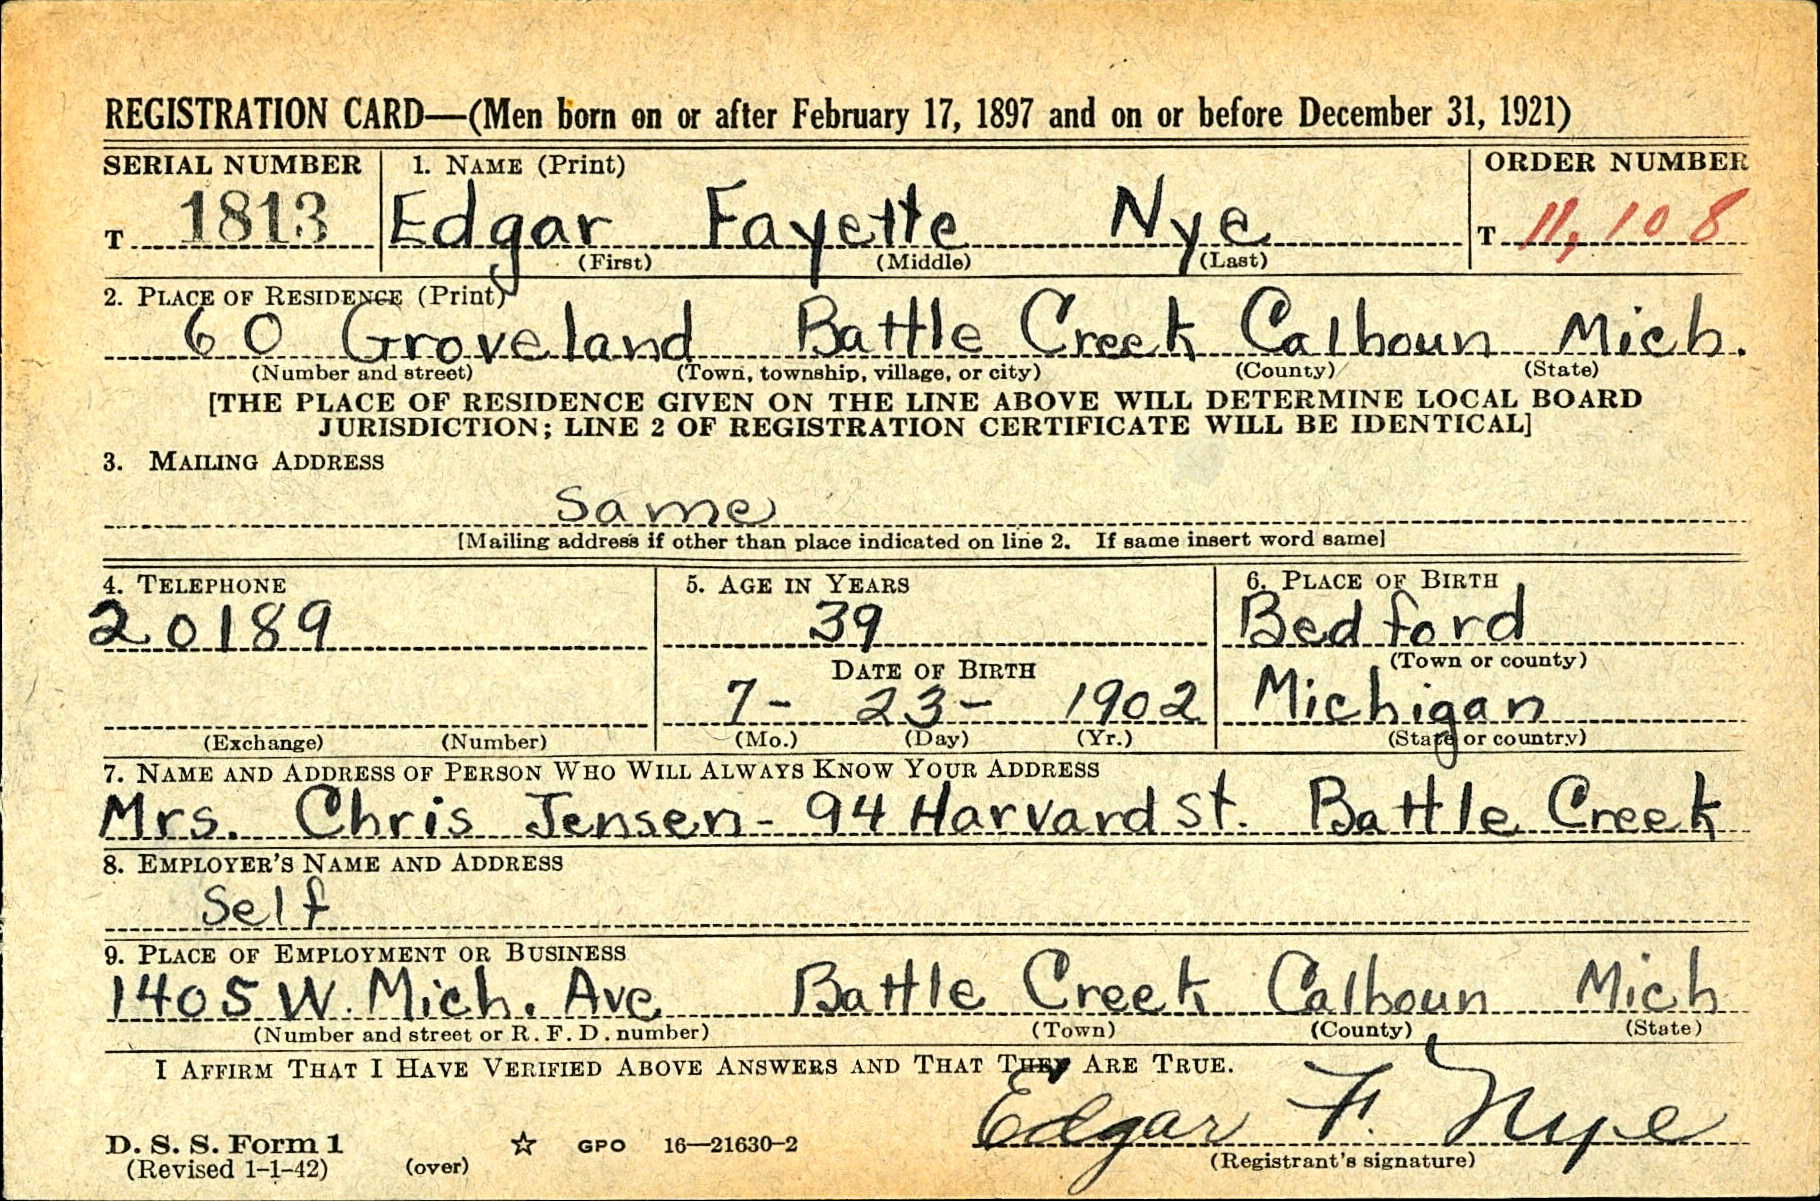 REGISTRATION CARD—(Men born on or after February 17, 1897 and on or before December 31, 1921)
SERIAL NUMBER 1. NAME (Print) ORDER NUMBER
T 1813 Edgar Fayette Nye T 11,108
(First) (Middle) (Last)
2. PLACE OF RESIDENCE (Print)
60 Groveland Battle Creek Calhoun Mich.
(Number and street) (Town, township, village, or city) (County) (State)
[THE PLACE OF RESIDENCE GIVEN ON THE LINE ABOVE WILL DETERMINE LOCAL BOARD
JURISDICTION; LINE 2 OF REGISTRATION CERTIFICATE WILL BE IDENTICAL]
3. MAILING ADDRESS
Same
[Mailing address if other than place indicated on line 2. If same insert word same]
4. TELEPHONE 5. AGE IN YEARS 6. PLACE OF BIRTH
20189 39 Bedford
DATE OF BIRTH (Town or county)
7- 23- 1902 Michigan
(Exchange) (Number) (Mo.) (Day) (Yr.) (State or country)
7. NAME AND ADDRESS OF PERSON WHO WILL ALWAYS KNOW YOUR ADDRESS
Mrs. Chris Jensen - 94 Harvard St. Battle Creek
8. EMPLOYER'S NAME AND ADDRESS
Self
9. PLACE OF EMPLOYMENT OR BUSINESS
1405 W. Mich. Ave Battle Creek Calhoun Mich
(Number and street or R. F. D. number) (Town) (County) (State)
I AFFIRM THAT I HAVE VERIFIED ABOVE ANSWERS AND THAT THEY ARE TRUE.
Edgar F. Nye
D. S. S. Form 1 GPO 16—21630-2
(Revised 1-1-42) (over) (Registrant's signature)